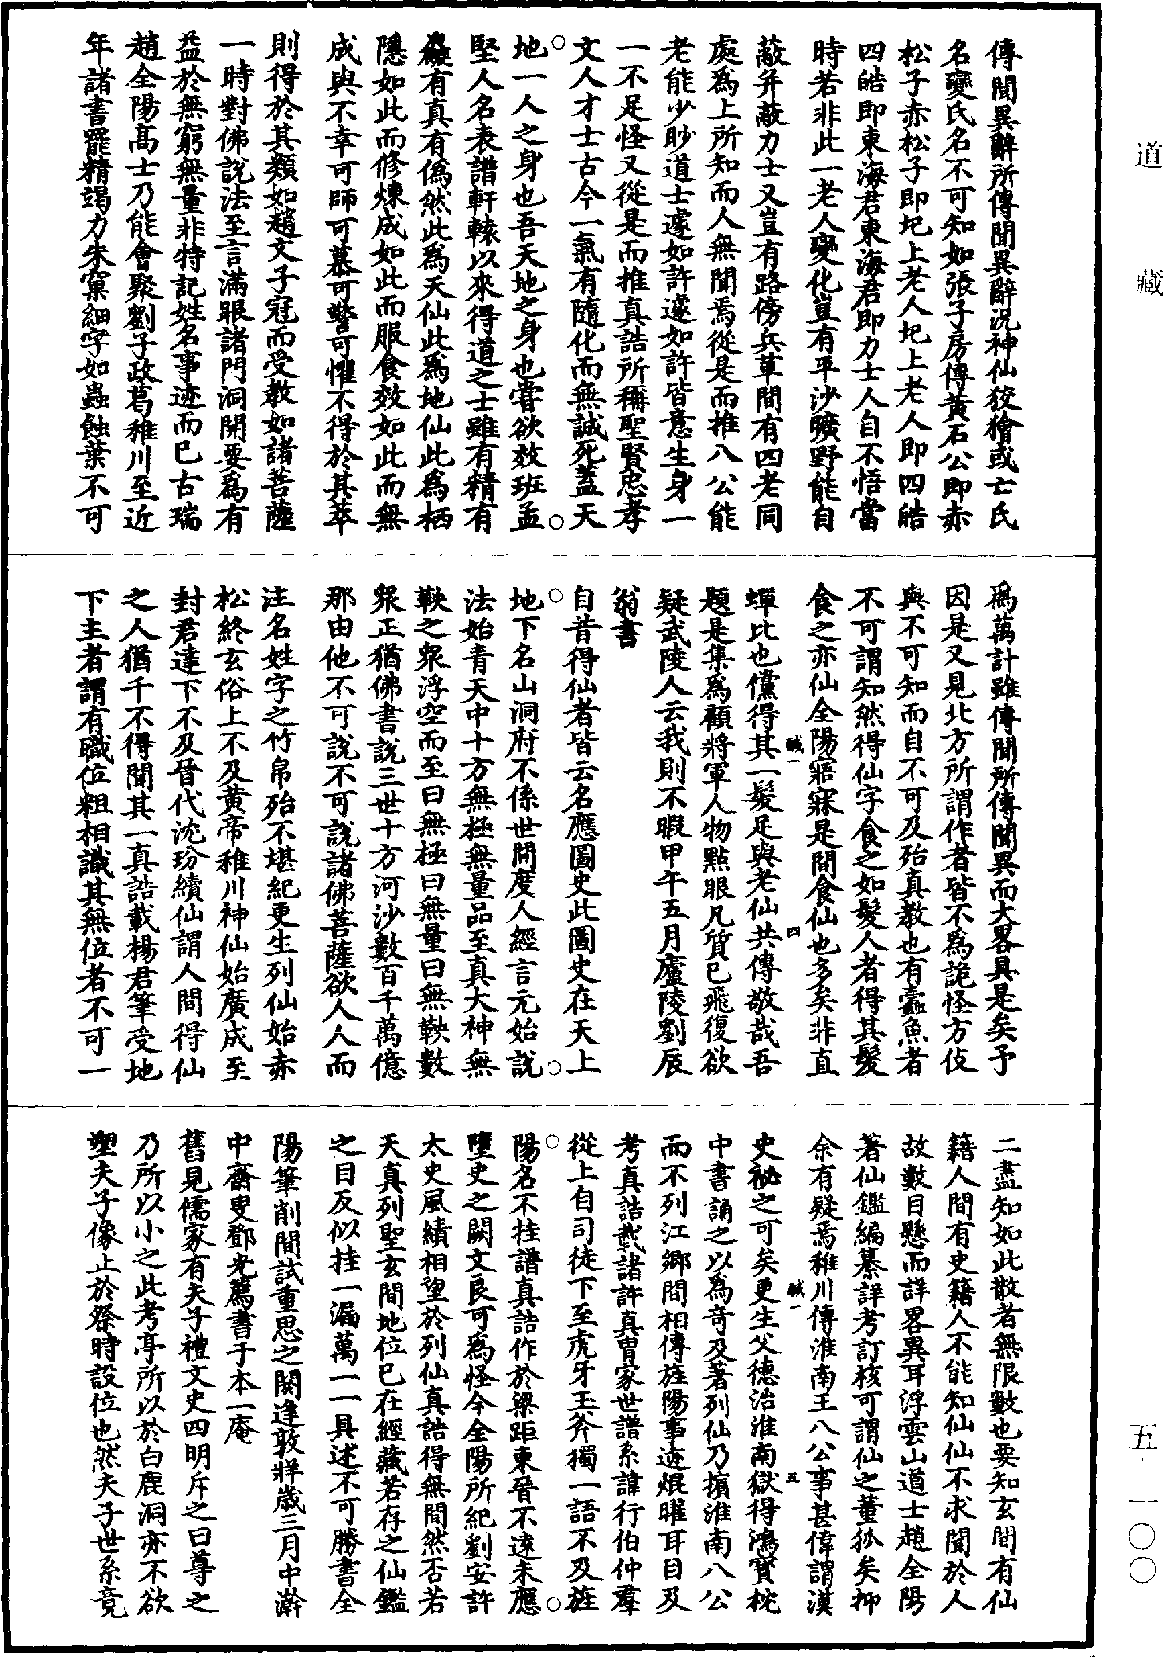 道藏
五·一〇〇
傳聞異辭所傳聞異辭況神仙狡獪或亡氏
名變氏名不可知如張子房傳黃石公即赤
松子赤松子即圯上老人圯上老人即四皓
四皓即東海君東海君即力士人自不悟當
時若非此一老人變化豈有平沙曠野能自
蔽并蔽力士又豈有路傍兵革間有四老同
處為上所知而人無聞焉從是而推八公能
老能少眇道士遽如許遽如許皆意生身一
一不足怪又從是而推真誥所稱聖賢忠孝
文人才士古今一氣有隨化而無誠死蓋天
地一人之身也吾天地之身也嘗欲效班孟
堅人名表譜軒轅以來得道之士雖有精有
麤有真有偽然此為天仙此為地仙此為栖
隱如此而修煉成如此而服食效如此而無
成與不幸可師可慕可警可懼不得於其萃
則得於其類如趙文子冠而受教如諸菩薩
一時對佛說法至言滿眼諸門洞開要為有
益於無窮無量非特記姓名事迹而已古瑞
趙全陽高士乃能會聚劉子政葛稚川至近
年諸書罷精竭力朱窠細字如蟲蝕葉不可
為萬計雖傳聞所傳聞異而大畧具是矣予
因是又見北方所謂作者皆不為詭怪方伎
與不可知而自不可及殆真教也有蠹魚者
不可謂知然得仙字食之如髮人者得其髮
食之亦仙全陽寤寐是間食仙也多矣非直
蟬比也儻得其一髮足與老仙共傳敬哉吾
題是集為顧將軍人物點眼凡質已飛復欲
疑武陵人云我則不暇甲午五月廬陵劉辰
翁書
自昔得仙者皆云名應圖史此圖史在天上
地下名山洞府不係世間度人經言元始說
法始青天中十方無極無量品至真大神無
鞅之眾浮空而至曰無極曰無量曰無鞅數
眾正猶佛書說三世十方河沙數百千萬億
那由他不可說不可說諸佛菩薩欲人人而
注名姓字之竹帛殆不堪紀更生列仙始赤
松終玄俗上不及黃帝稚川神仙始廣成至
封君達下不及晉代沈玢續仙謂人間得仙
之人猶千不得聞其一真誥載楊君筆受地
下主者謂有職位粗相識其無位者不可一
二盡知如此散者無限數也要知玄間有仙
籍人間有史籍人不能知仙仙不求聞於人
故數目懸而詳畧異耳浮雲山道士趙全陽
著仙鑑編纂詳考訂核可謂仙之董狐矣抑
余有疑焉稚川傳淮南王八公事甚偉謂漢
史祕之可矣更生父德治淮南獄得鴻寶枕
中書誦之以為奇及著列仙乃擯淮南八公
而不列江鄉間相傳旌陽事迹焜曜耳目及
考真誥載諸許真胄家世譜系諱行伯仲羣
從上自司徒下至虎牙玉斧獨一語不及旌
陽名不挂譜真誥作於梁距東晉不遠未應
墮史之闕文良可為怪今全陽所紀劉安許
太史風績相望於列仙真誥得無間然否若
天真列聖玄間地位已在經藏若存之仙鑑
之目反似挂一漏萬一一具述不可勝書全
陽筆削間試重思之閼逢敦牂歲三月中澣
中齋叟鄧光薦書于本一庵
舊見儒家有夫子禮文史四明斥之曰尊之
乃所以小之此考亭所以於白鹿洞亦不欲
塑夫子像止於祭時設位也然夫子世系竟